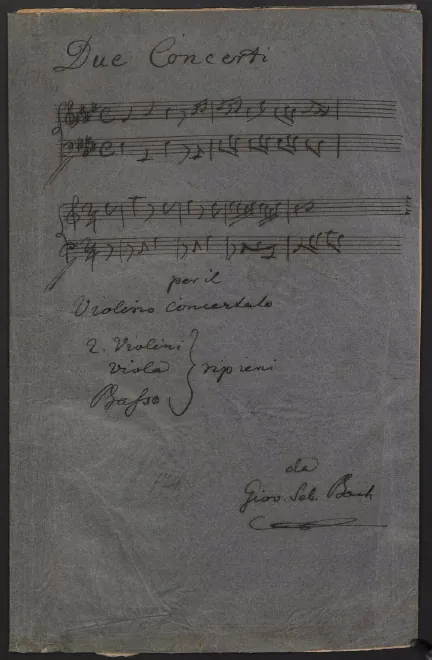 Due Concerti
per il
Violino Concertato
2. Violini
Viola
ripieni
Basso
da
Giov. Seb. Bach